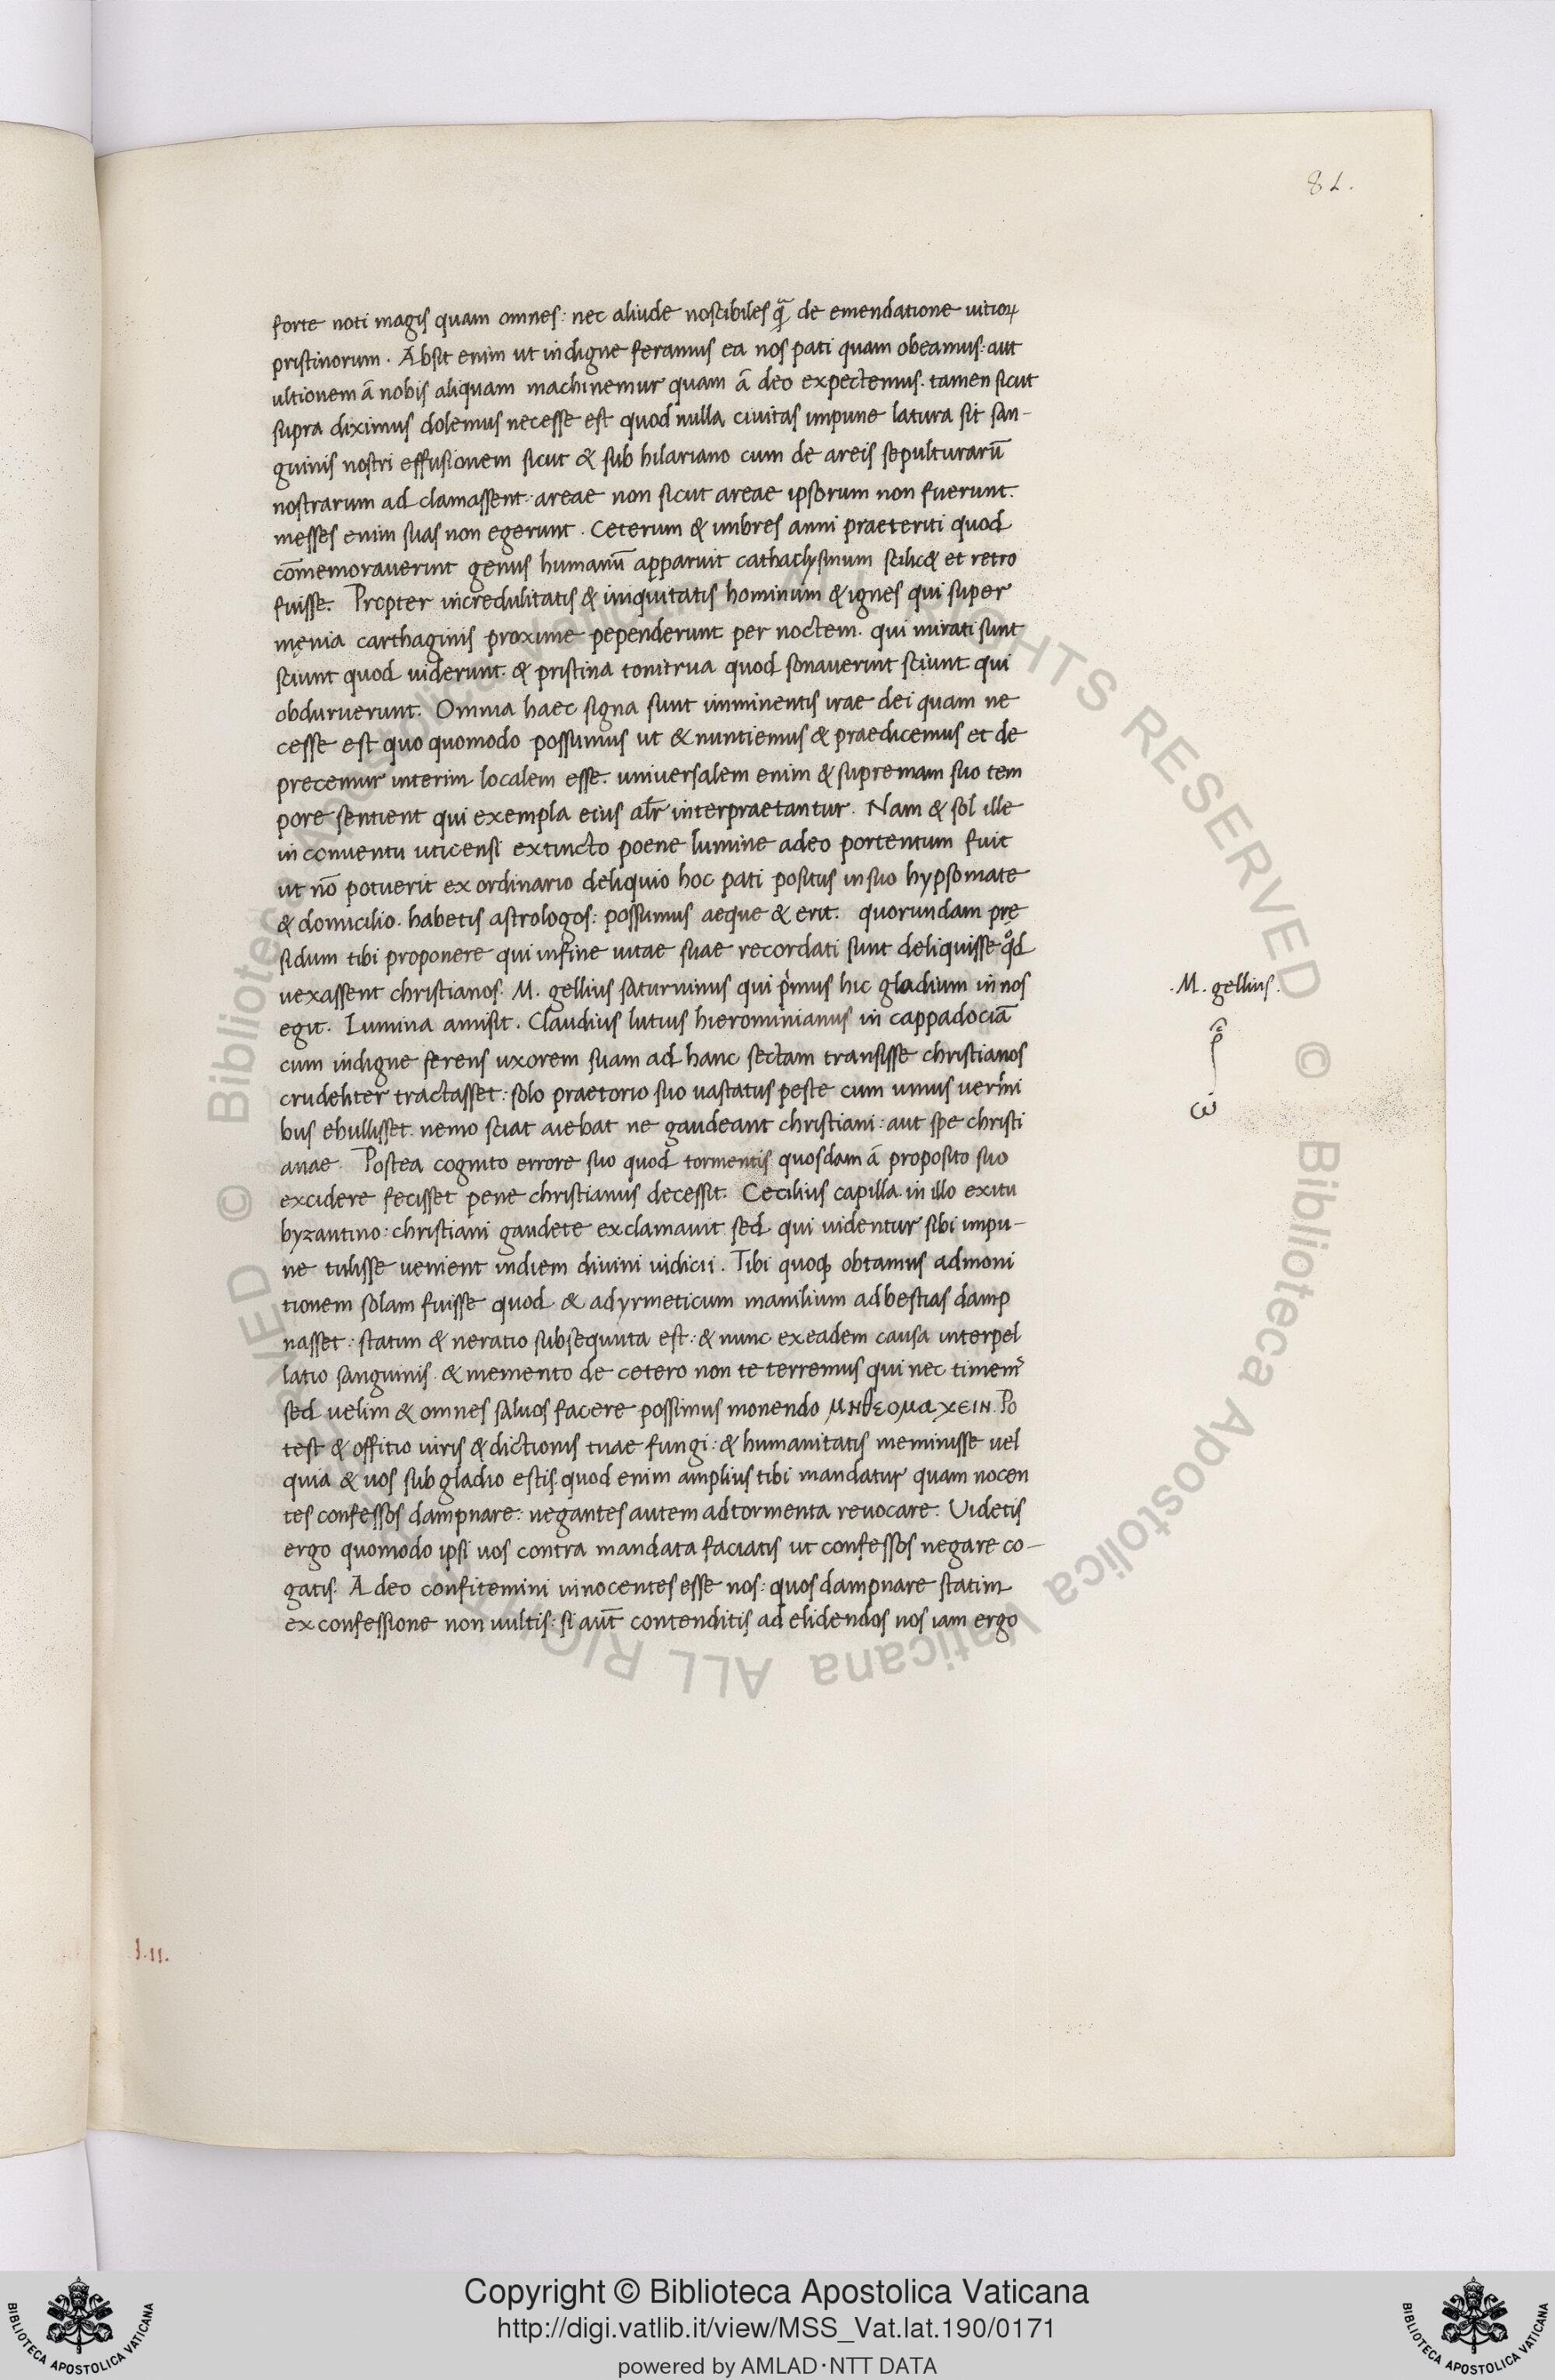 82.
forte noti magis quam omnes: nec aliude noscibiles q̃ de emendatione uitioꝝ
pristinorum. Absit enim ut indigne feramus ea nos pati quam obeamus: aut
ultionem ā nobis aliquam machinemur quam ā deo expectemus. tamen sicut
supra diximus dolemus necesse est quod nulla ciuitas impune latura sit san-
guinis nostri effusionem sicut & sub hilariano cum de areis sepulturarū
nostrarum ad clamassent: areae non sicut areae ipsorum non fuerunt.
messes enim suas non egerunt. Ceterum & imbres anni praeteriti quod
cōmemorauerint genus humanū apparuit cathaclysmum scilic& et retro
fuisse. Propter incredulitatis & iniquitatis hominum & ignes qui super
męnia carthaginis proxime pependerunt per noctem. qui mirati sunt
sciunt quod uiderunt. & pristina tonitrua quod sonauerint sciunt qui
obduruerunt. Omnia haec signa sunt imminentis irae dei quam ne
cesse est quo quomodo possumus ut & nuntiemus & praedicemus et de
precemur interim localem esse. uniuersalem enim & supremam suo tem
pore sentient qui exempla eius alr̄ interpraetantur. Nam & sol ille
in conuentu uticensi extincto poene lumine adeo portentum fuit
ut nō potuerit ex ordinario deliquio hoc pati positus in suo hypsomate
& domicilio. habetis astrologos: possumus aeque & erit. quorundam prę
sidum tibi proponere qui in fine uitae suae recordati sunt deliquisse qd̊
uexassent christianos. M. gellius saturninus qui pͥmus hic gladium in nos
egit. Lumina amisit. Claudius lutius hierominianus in cappadociā
cum indigne ferens uxorem suam ad hanc sectam transisse christianos
crudeliter tractasset: solo praetorio suo uastatus peste cum uiuus uermi
bus ebullisset. nemo sciat aiebat ne gaudeant christiani: aut spe christi
anae. Postea cognito errore suo quod tormentis quosdam ā proposito suo
excidere fecisset pene christianus decessit. Cecilius capilla in illo exitu
byzantino: christiani gaudete exclamauit sed qui uidentur sibi impu-
ne tulisse uenient indiem diuini iudicii. Tibi quoq; obtamus admoni
tionem solam fuisse quod & adyrmeticum manilium ad bestias damp
nasset: statim & neratio subsequuta est: & nunc ex eadem causa interpel
latio sanguinis. & memento de cetero non te terremus qui nec timemꝰ
sed uelim & omnes saluos facere possimus monendo μη θεομαχειν. Po
test & offitio uiris & dictionis tuae fungi: & humanitatis meminisse uel
quia & uos sub gladio estis. quod enim amplius tibi mandatur quam nocen
tes confessos dampnare: negantes autem ad tormenta reuocare. Uidetis
ergo quomodo ipsi uos contra mandata faciatis ut confessos negare co-
gatis. A deo confitemini innocentes esse nos: quos dampnare statim
ex confessione non uultis: si aut̄ contenditis ad elidendos nos iam ergo
.M. gellius.
l.ii.
© Biblioteca Apostolica Vaticana ALL RIGHTS RESERVED © Biblioteca Apostolica Vaticana ALL RIGHTS RESERVED
Copyright © Biblioteca Apostolica Vaticana
http://digi.vatlib.it/view/MSS_Vat.lat.190/0171
powered by AMLAD·NTT DATA
BIBLIOTECA APOSTOLICA VATICANA
BIBLIOTECA APOSTOLICA VATICANA